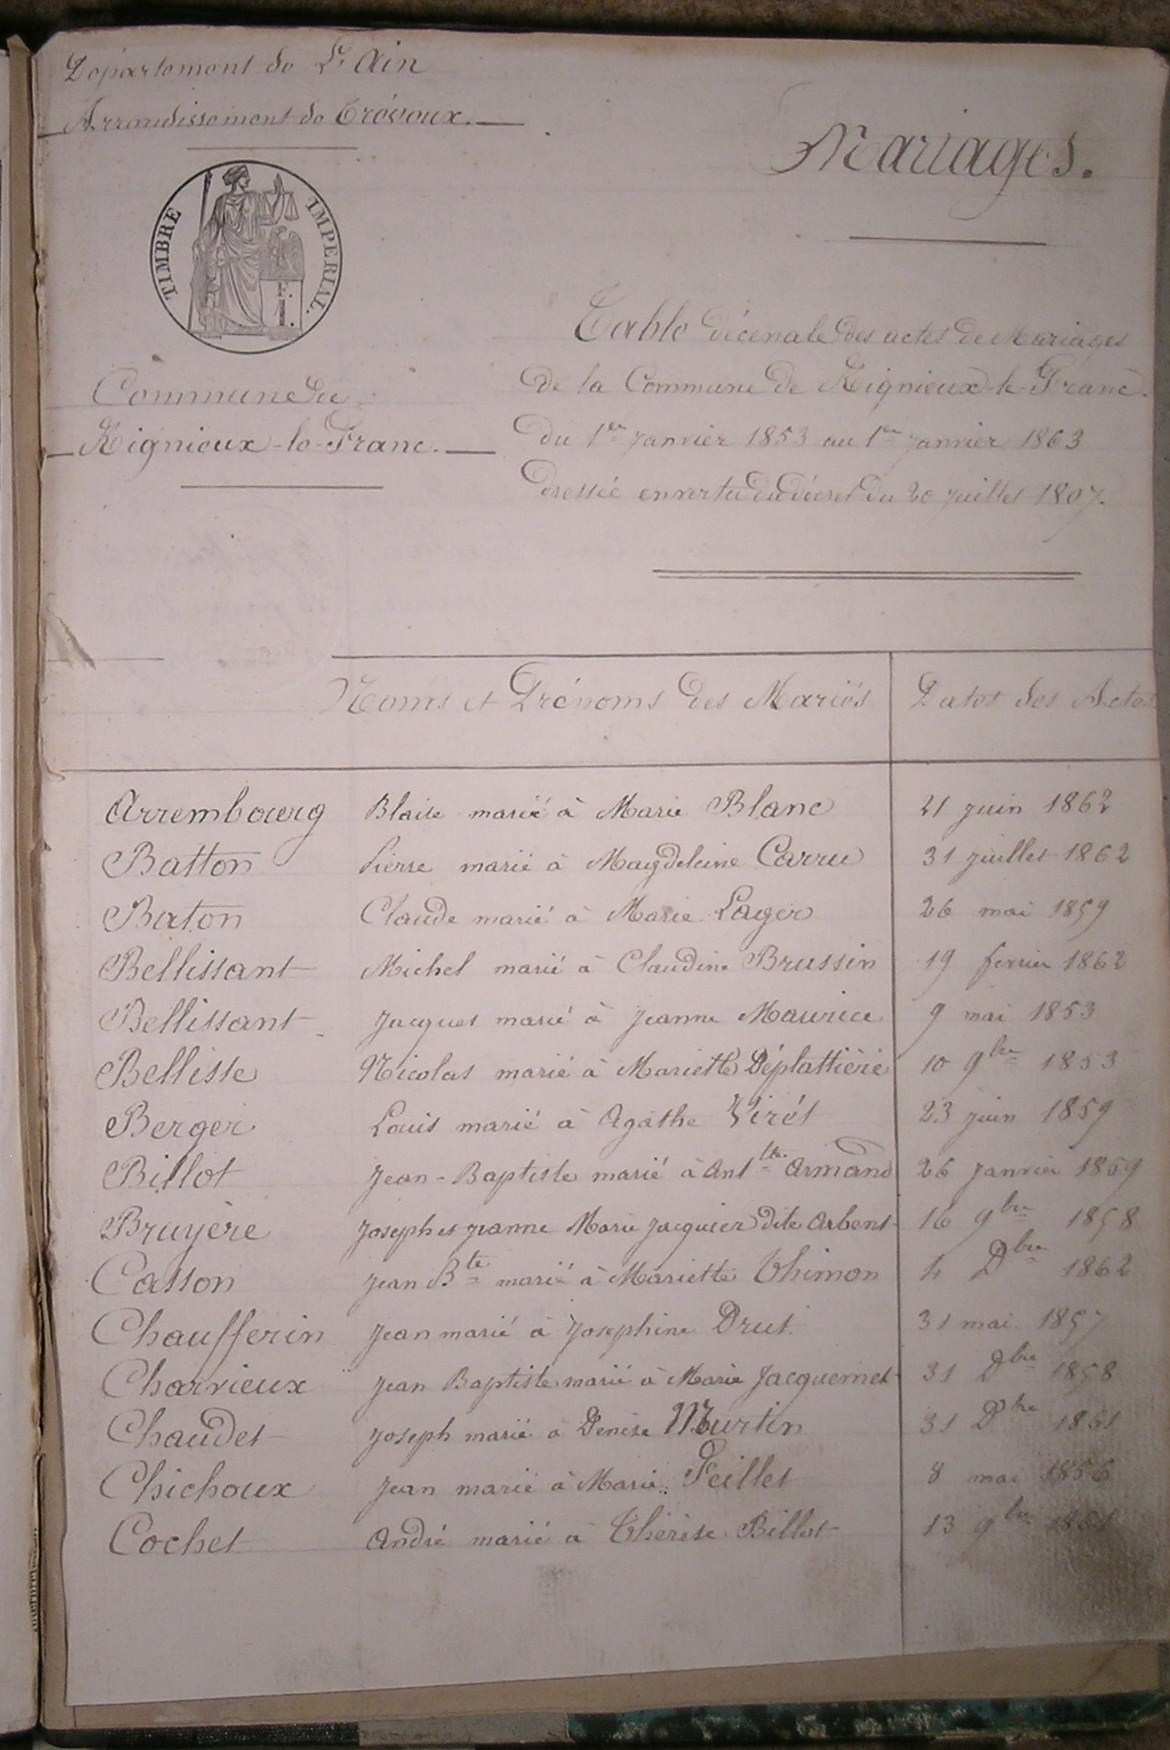 Département de L' Ain
Arrondissement de Trévoux.
Mariages.
TIMBRE IMPERIAL.
F.
1.
Commune de
Rignieux-le-Franc.
Table décenale des actes de Mariages
de la Commune de Rignieux-le-Franc.
du 1er Janvier 1853 au 1er Janvier 1863
dressée en vertu du décret du 20 Juillet 1807.
Noms et Prénoms des Mariés Dates des Actes
Arrembourg Blaise marié à Marie Blanc 21 juin 1862
Batton Pierre marié à Magdeleine Carru 31 juillet 1862
Baton Claude marié à Marie Lager 26 mai 1859
Bellissant Michel marié à Claudine Brussin 19 fevrier 1862
Bellissant Jacques marié à Jeanne Maurice 9 mai 1853
Bellisse Nicolas marié à Mariette Déplattière 10 9bre 1853
Berger Louis marié à Agathe Virét 23 juin 1859
Billot Jean-Baptiste marié à Antte Armand 26 Janvier 1859
Bruyère Joseph et Jeanne Marie Jacquier dite Arbent 16 9bre 1858
Casson Jean Bte marié à Mariette Thimon 4 Dbre 1862
Chaufferin Jean marié à Josephine Drut 31 mai 1857
Charvieux Jean Baptiste marié à Marie Jacquemet 31 Dbre 1858
Chaudet Joseph marié à Denise Murtin 31 Dbre
Chichoux Jean marié à Marie Feillet 8 mai 1856
Cochet André marié à Thérèse Billot 13 9bre